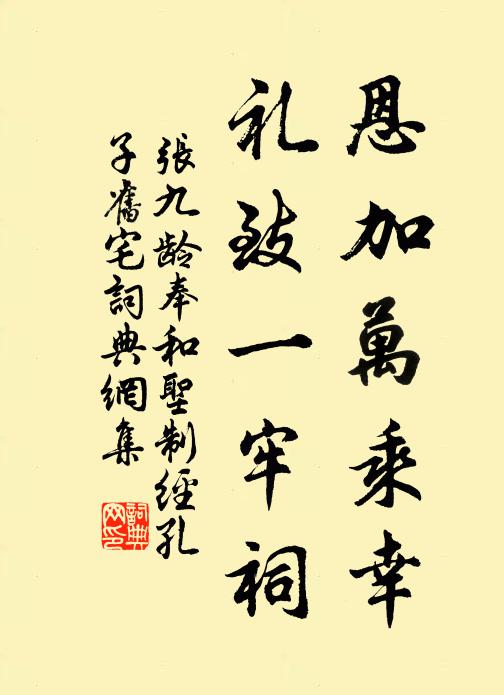 恩加萬乘幸
礼致一牢祠
張九龄奉和聖制經孔
子舊宅詞典網集
詞典
网印